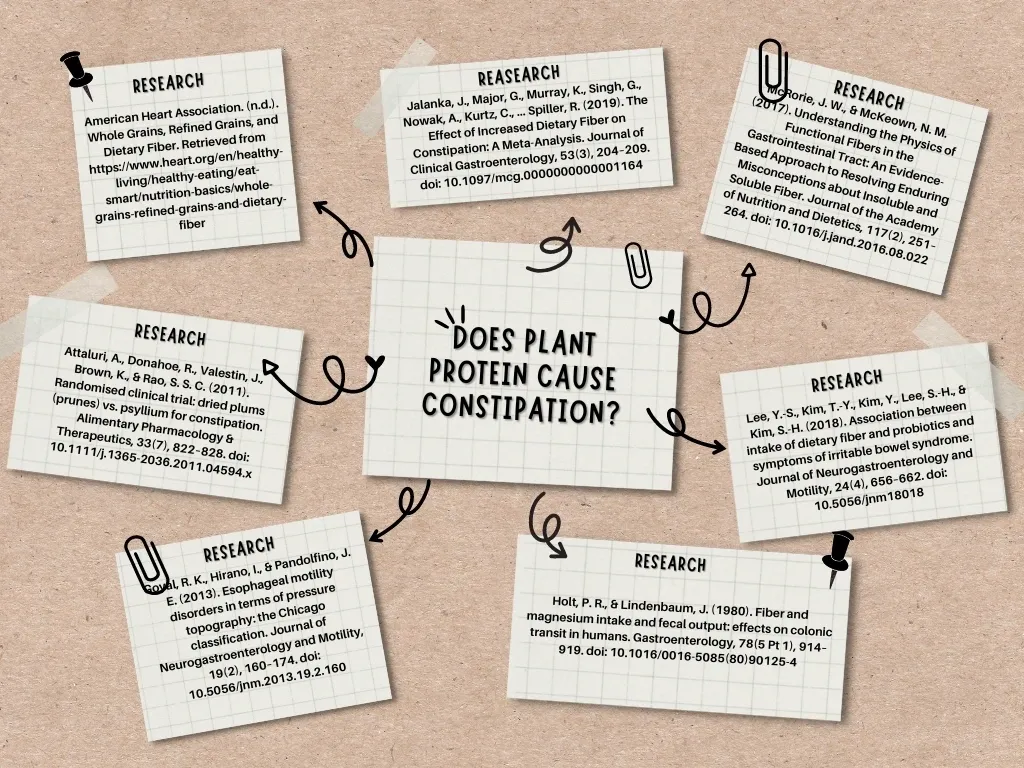 RESEARCH
American Heart Association. (n.d.).
Whole Grains, Refined Grains, and
Dietary Fiber. Retrieved from
https://www.heart.org/en/healthy-
living/healthy-eating/eat-
smart/nutrition-basics/whole-
grains-refined-grains-and-dietary-
fiber
REASEARCH
Jalanka, J., Major, G., Murray, K., Singh, G.,
Nowak, A., Kurtz, C., ... Spiller, R. (2019). The
Effect of Increased Dietary Fiber on
Constipation: A Meta-Analysis. Journal of
Clinical Gastroenterology, 53(3), 204-209.
doi: 10.1097/mcg.0000000000001164
RESEARCH
McRorie, J. W., & McKeown, N. M.
(2017). Understanding the Physics of
Functional Fibers in the
Gastrointestinal Tract: An Evidence-
Based Approach to Resolving Enduring
Misconceptions about Insoluble and
Soluble Fiber. Journal of the Academy
of Nutrition and Dietetics, 117(2), 251-
264. doi: 10.1016/j.jand.2016.08.022
RESEARCH
Attaluri, A., Donahoe, R., Valestin, J.,
Brown, K., & Rao, S. S. C. (2011).
Randomised clinical trial: dried plums
(prunes) vs. psyllium for constipation.
Alimentary Pharmacology &
Therapeutics, 33(7), 822-828. doi:
10.1111/j.1365-2036.2011.04594.x
DOES PLANT
PROTEIN CAUSE
CONSTIPATION?
RESEARCH
Lee, Y.-S., Kim, T.-Y., Kim, Y., Lee, S.-H., &
Kim, S.-H. (2018). Association between
intake of dietary fiber and probiotics and
symptoms of irritable bowel syndrome.
Journal of Neurogastroenterology and
Motility, 24(4), 656-662. doi:
10.5056/jnm18018
RESEARCH
Goyal, R. K., Hirano, I., & Pandolfino, J.
E. (2013). Esophageal motility
disorders in terms of pressure
topography: the Chicago
classification. Journal of
Neurogastroenterology and Motility,
19(2), 160-174. doi:
10.5056/jnm.2013.19.2.160
RESEARCH
Holt, P. R., & Lindenbaum, J. (1980). Fiber and
magnesium intake and fecal output: effects on colonic
transit in humans. Gastroenterology, 78(5 Pt 1), 914-
919. doi: 10.1016/0016-5085(80)90125-4